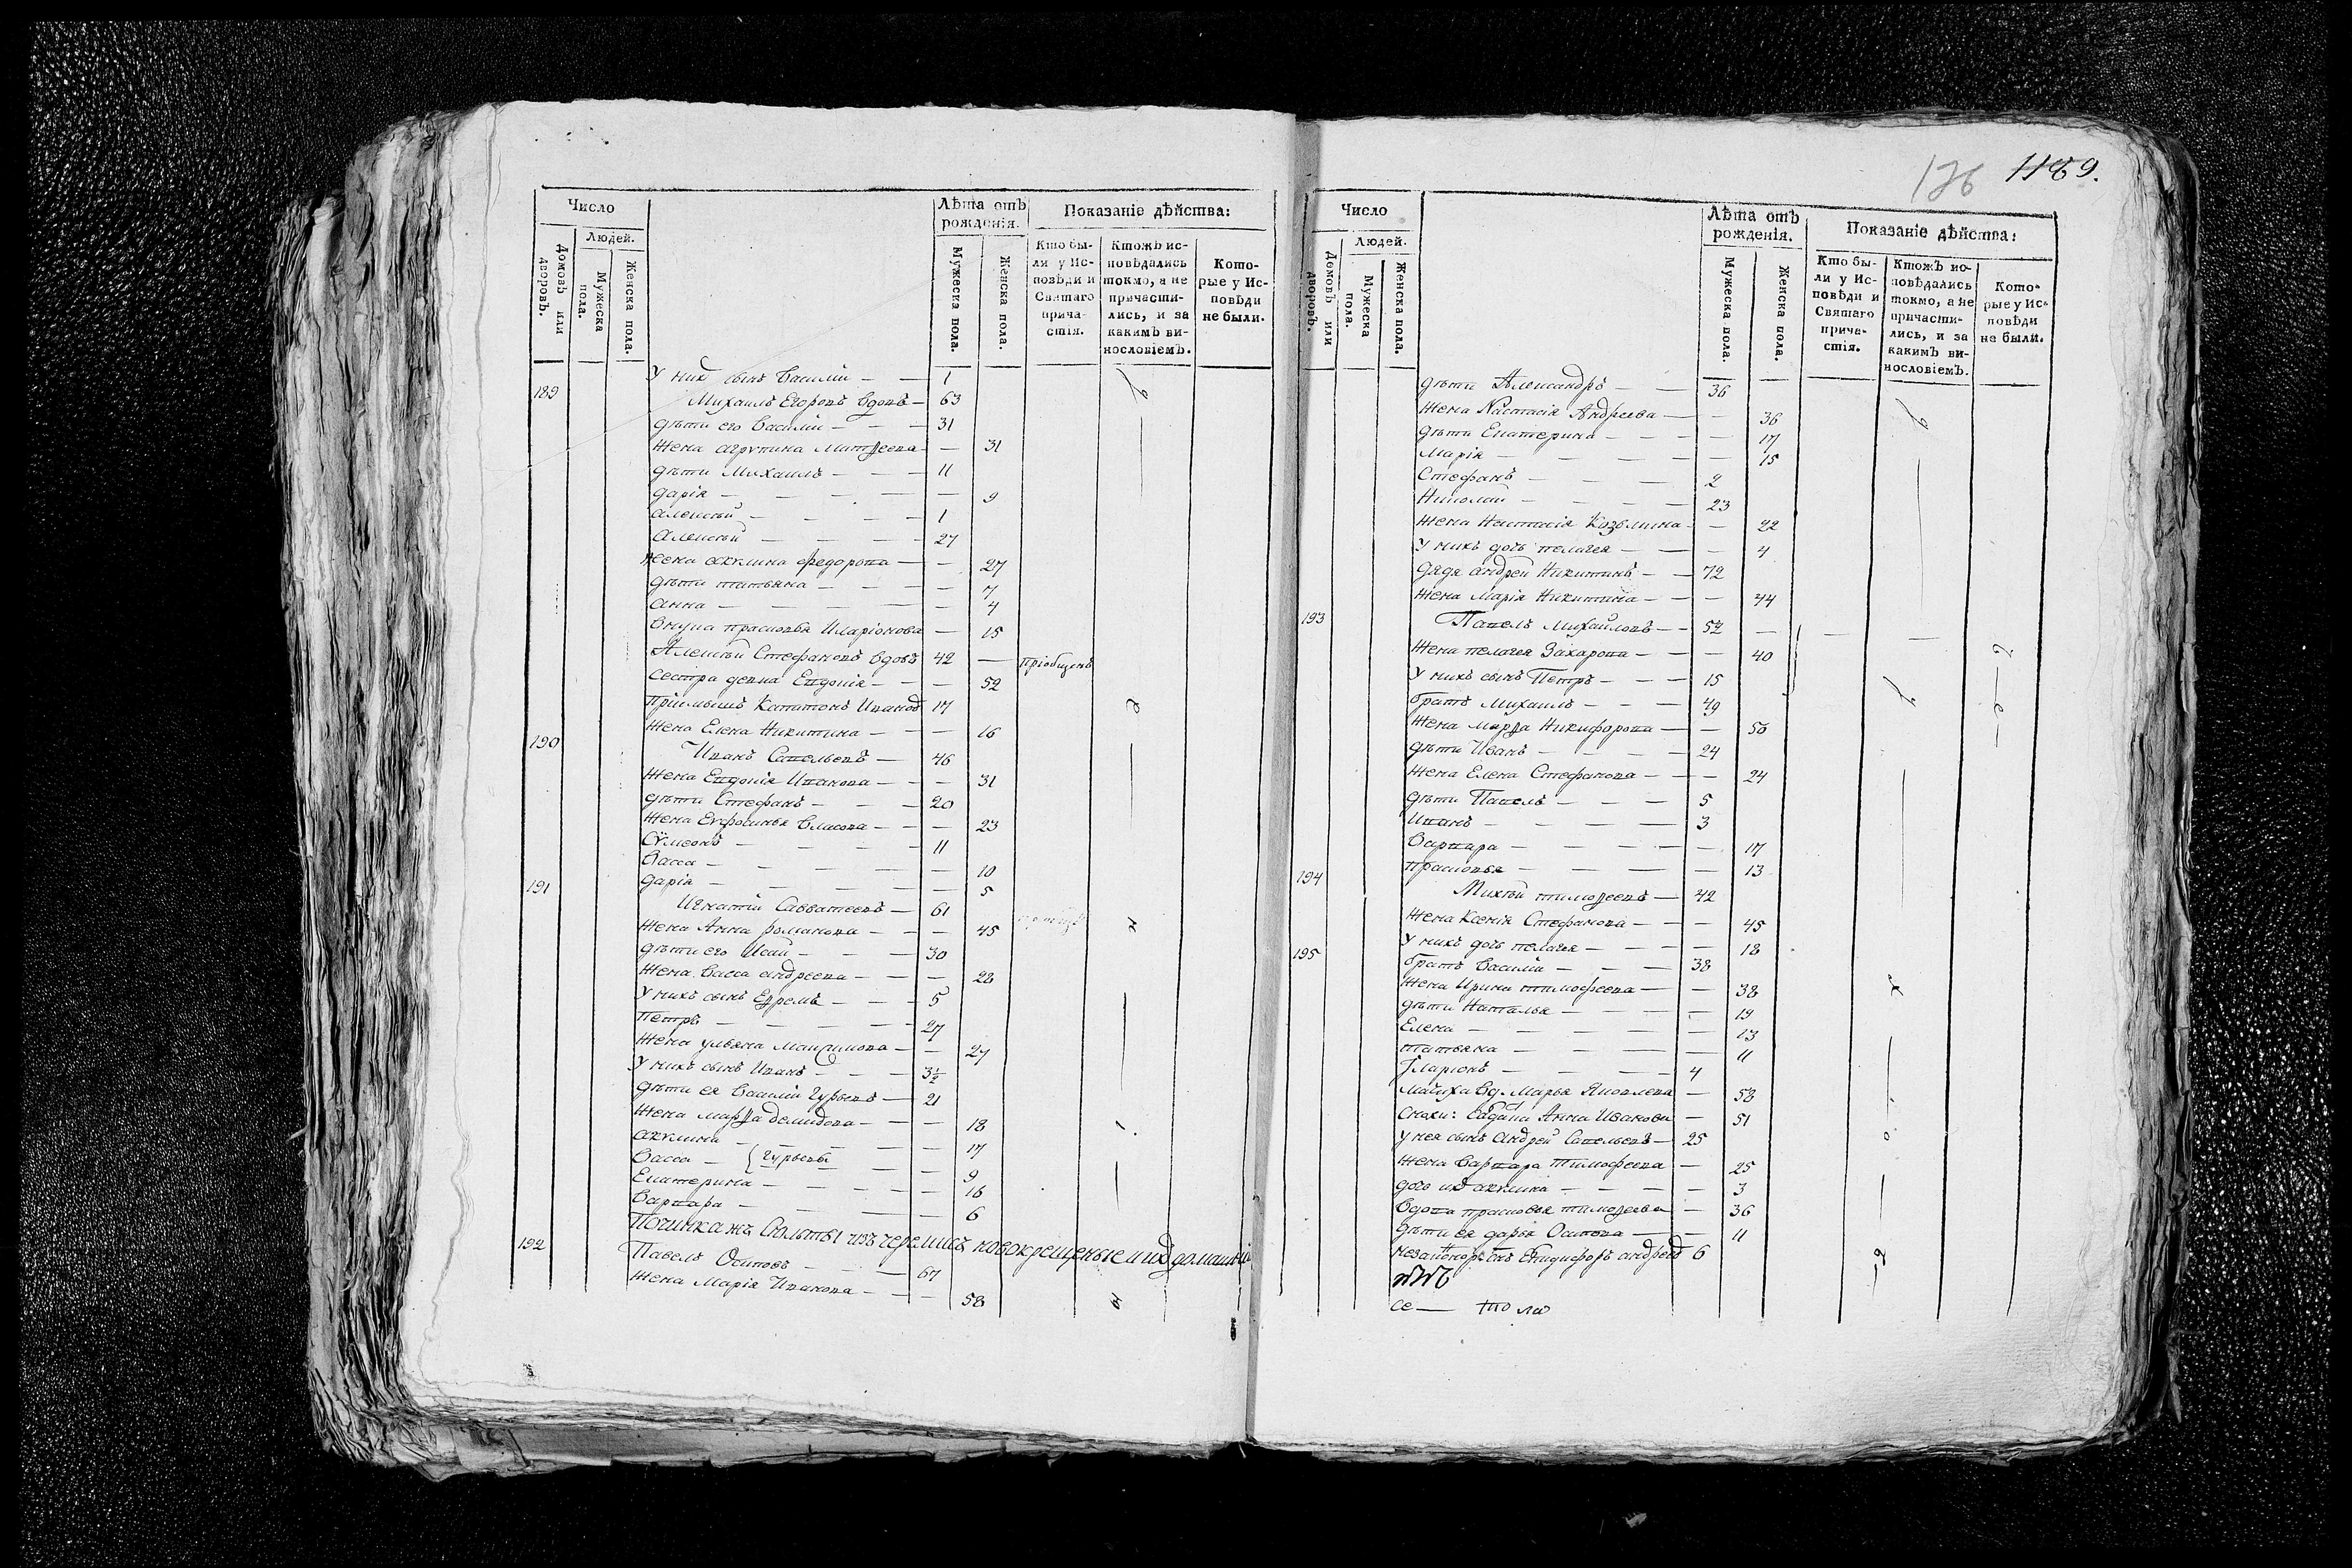 Число
Людей.
Домовъ или дворовъ.
Мужеска пола.
Женска пола.
Лѣта отъ рожденія.
Мужеска пола.
Женска пола.
Показаніе дѣйства:
Кто бы-
ли у Ис-
повѣди и
Святаго
прича-
стія.
Ктожъ ис-
повѣдались
токмо, а не
причасти-
лись, и за
какимъ ви-
нословіемъ.
Кото-
рые у Ис-
повѣди
не были.
У них сынъ Василій — — 1
189 Михаилъ Егоровъ вдовъ — 63
дѣти его Василій — — — 31
жена агрѵпина Матѳеева — 31
дѣти Михаилъ — — — 11
дарія — — — — — 9
алексѣй — — — — 1
Алексѣй — — — — 27
жена акѵлина федорова — — 27
дѣти татьяна — — — — 7
анна — — — — — 4
внука прасковья Иларіонова — 15
Алексѣй Стефановъ вдовъ 42 — пріобщенъ
Сестра девка Евдокія — — — 52
пріимышъ Капитонъ Иванов 17
жена Елена Никитина — — — 16
190 Иванъ Савельевъ — 46
жена Евдокія Иванова — — — 31
дѣти Стефанъ — — — 20
жена Евфросинья Власова — — — 23
Сѵмеонъ — — — — 11
Васса — — — — — 10
дарія — — — — — 5
191 Игнатій Савватеевъ — 61
жена Анна романова — — — 45
дѣти его Исай — — — 30
жена Васса андреева — — — 28
У нихъ сынъ Ефремъ — — — 5
Петръ — — — — — 27
жена ульяна Максимова — — 27
У нихъ сынъ Иванъ — — — 3½
дѣти ея Василій Гурьевъ — 21
жена марѳа демидова — — — 18
акѵлина — — — — 17
Васса — { Гурьевы — — 9
Екатерина — — — — — 16
Варвара — — — — — 6
Починка жъ Сюлты изъ черемисъ новокрещеные и их домашніе
192 Павелъ Осиповъ — — — 67
жена Марія Иванова — — — 58
126 1189.
Число
Людей.
Домовъ или дворовъ.
Мужеска пола.
Женска пола.
Лѣта отъ рожденія.
Мужеска пола.
Женска пола.
Показаніе дѣйства:
Кто бы-
ли у Ис-
повѣди и
Святаго
прича-
стія.
Ктожъ ис-
повѣдались
токмо, а не
причасти-
лись, и за
какимъ ви-
нословіемъ.
Кото-
рые у Ис-
повѣди
не были.
дѣти Александръ — — 36
жена Настасія Андреева — — 36
дѣти Екатерина — — — — 17
Марія — — — — — 15
Стефанъ — — — 2
Николай — — — — 23
жена Настасія Козьмина — — 22
У нихъ дочь пелагея — — — 4
дядя андрей Никитинъ — — 72
жена Марія Никитина — — — 44
193 Павелъ Михайловъ — — 52
жена пелагея Захарова — — — 40
У нихъ сынъ Петръ — — — 15
братъ Михаилъ — — — 49
жена марѳа Никифорова — — 50
дѣти Иванъ — — — — 24
жена Елена Стефанова — — — 24
дѣти Павелъ — — — 5
Иванъ — — — — — 3
Варвара — — — — — 17
прасковья — — — — — 13
194 Михѣй тимоѳеевъ — 42
жена Ксенія Стефанова — — — 45
У нихъ дочь пелагея — — — — 18
195 братъ Василій — — — 38
жена Ирина тимофеева — — 38
дѣти Наталья — — — — 19
Елена — — — — — 13
татьяна — — — — 11
Іларіонъ — — — — 4
мачиха вд. Марья Яковлева — 58
Снохи: Анна Иванова — 51
у нея сынъ андрей Савельевъ — 25
жена Варвара Тимофеева — 25
дочь их акѵлина — — — — 3
вдова прасковья тимоѳеева — 36
дѣти ея дарья Осипова — — 11
андреев 6
се —